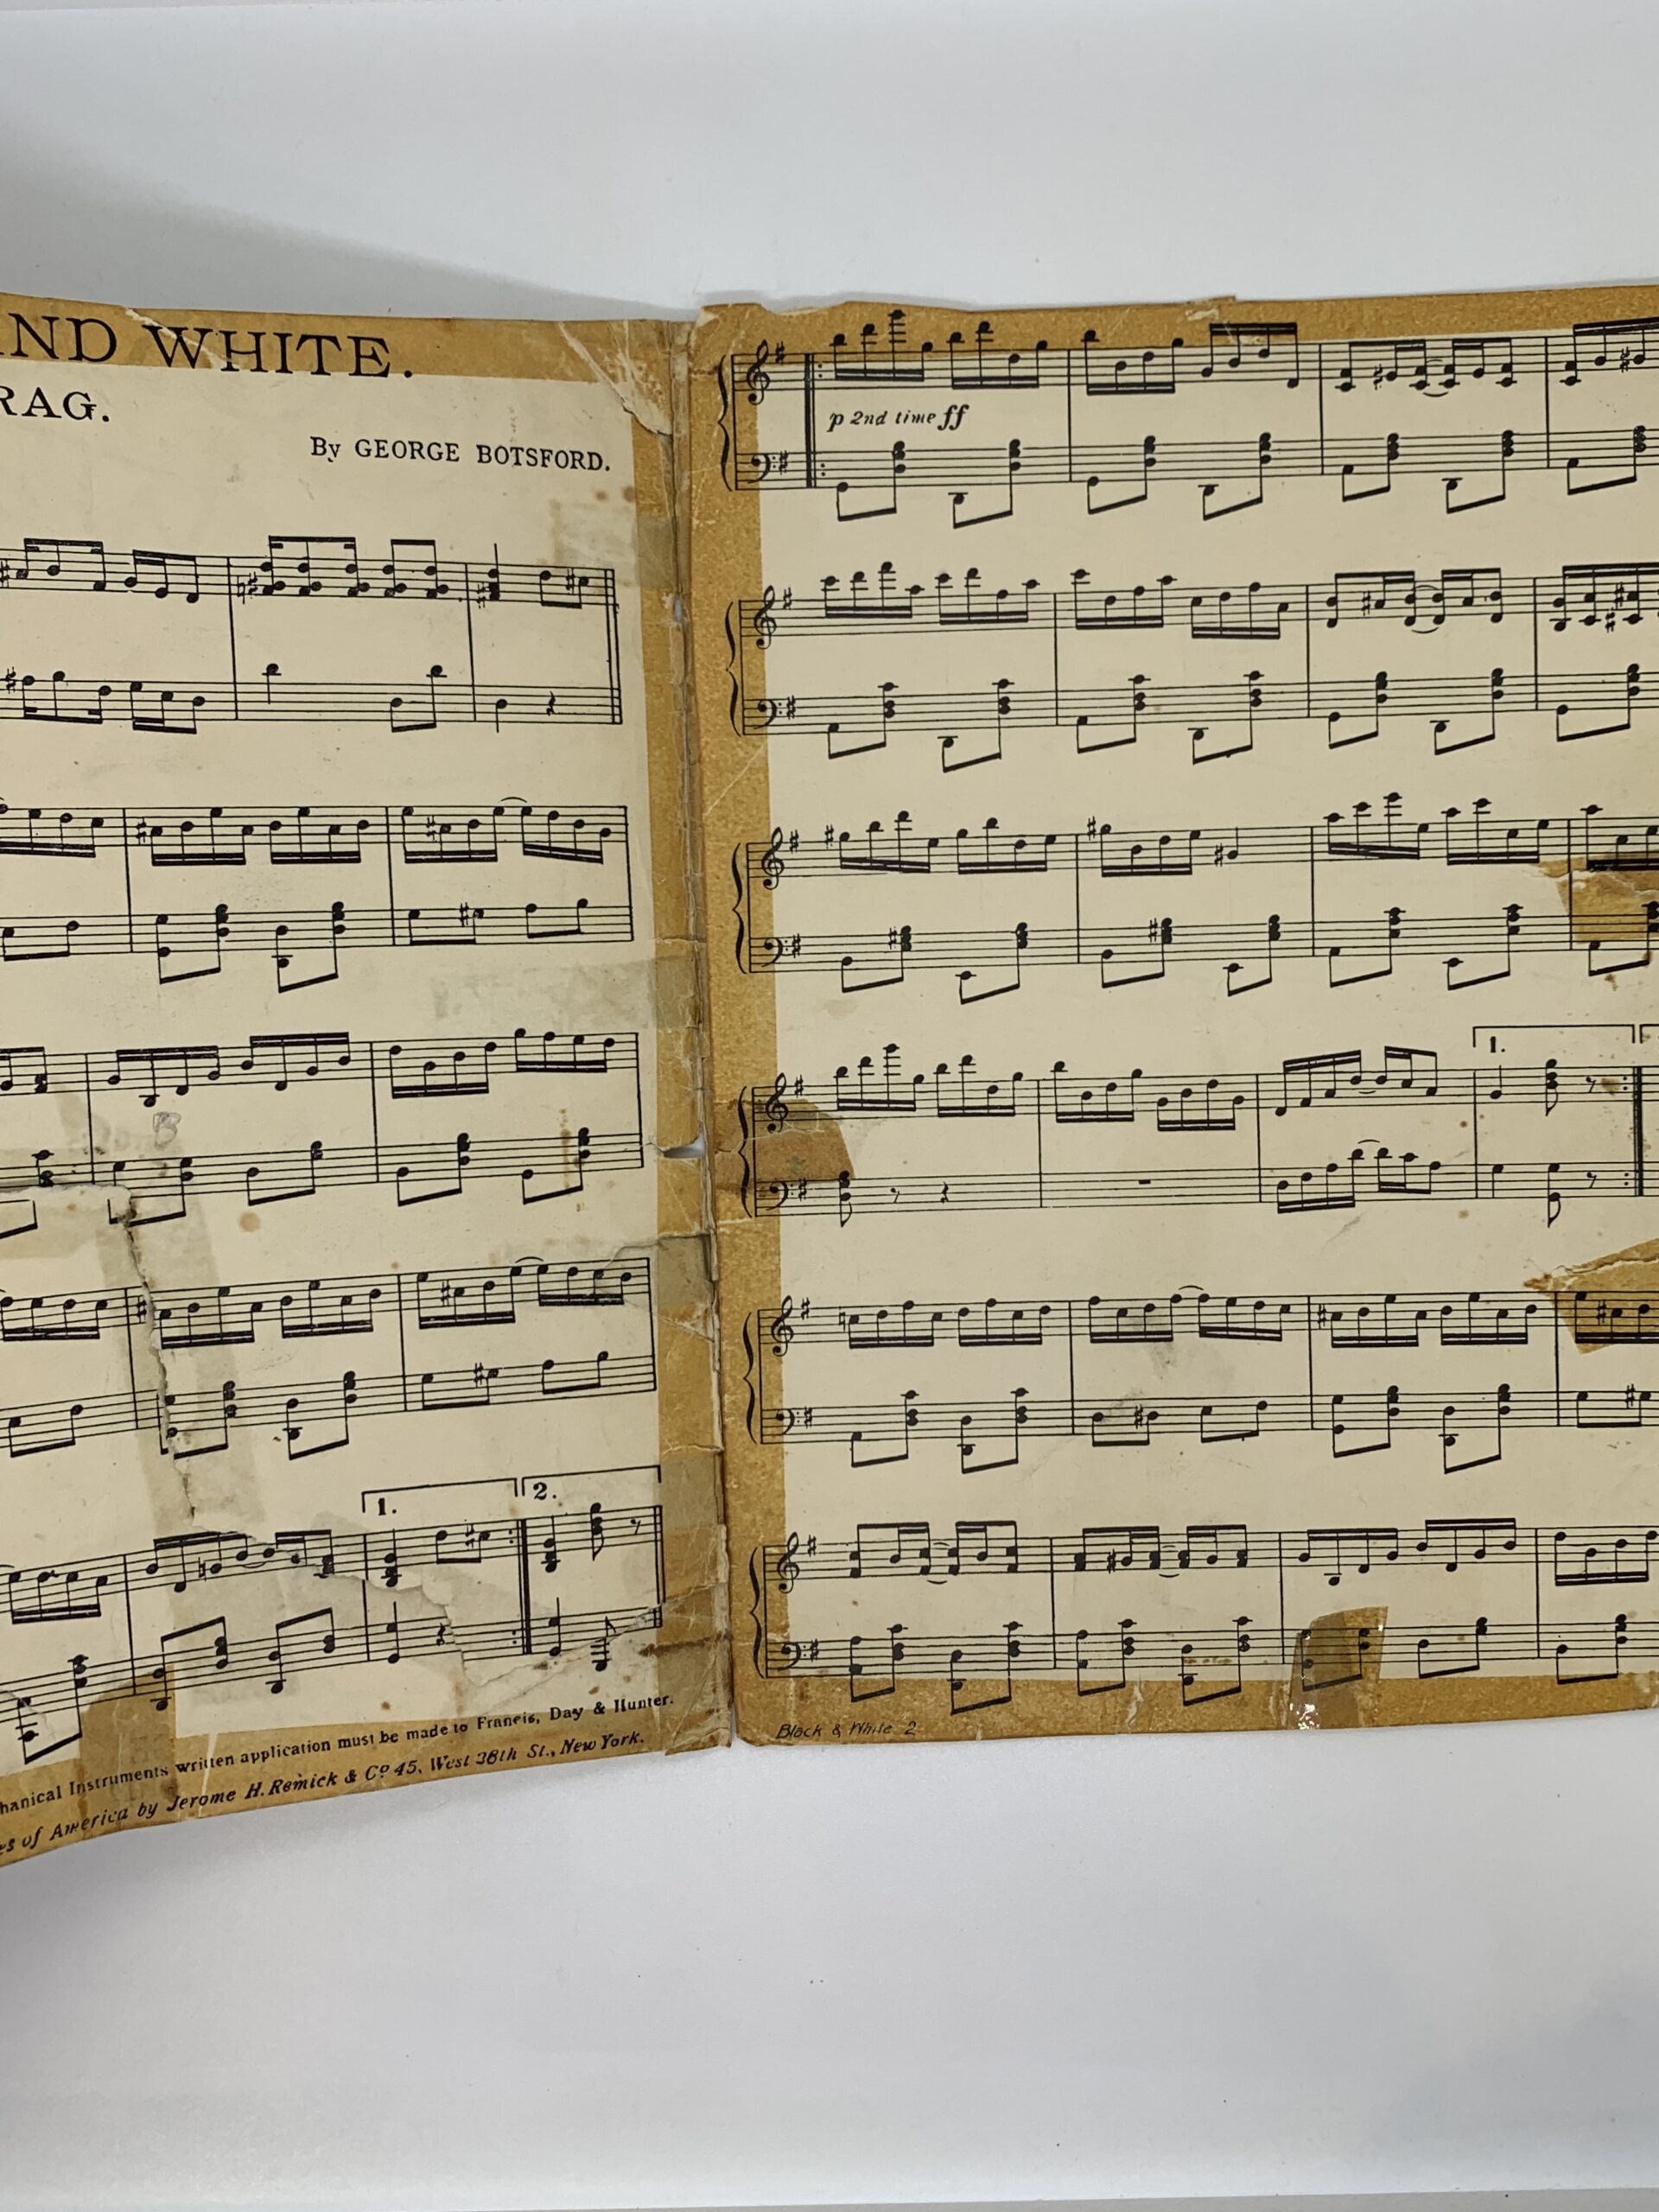 AND WHITE.
RAG.
By GEORGE BOTSFORD.
1.
2.
hanical Instruments written application must be made to Francis, Day & Hunter.
es of America by Jerome H. Remick & Co 45, West 38th St., New York.
p 2nd time ff
1.
Black & White 2